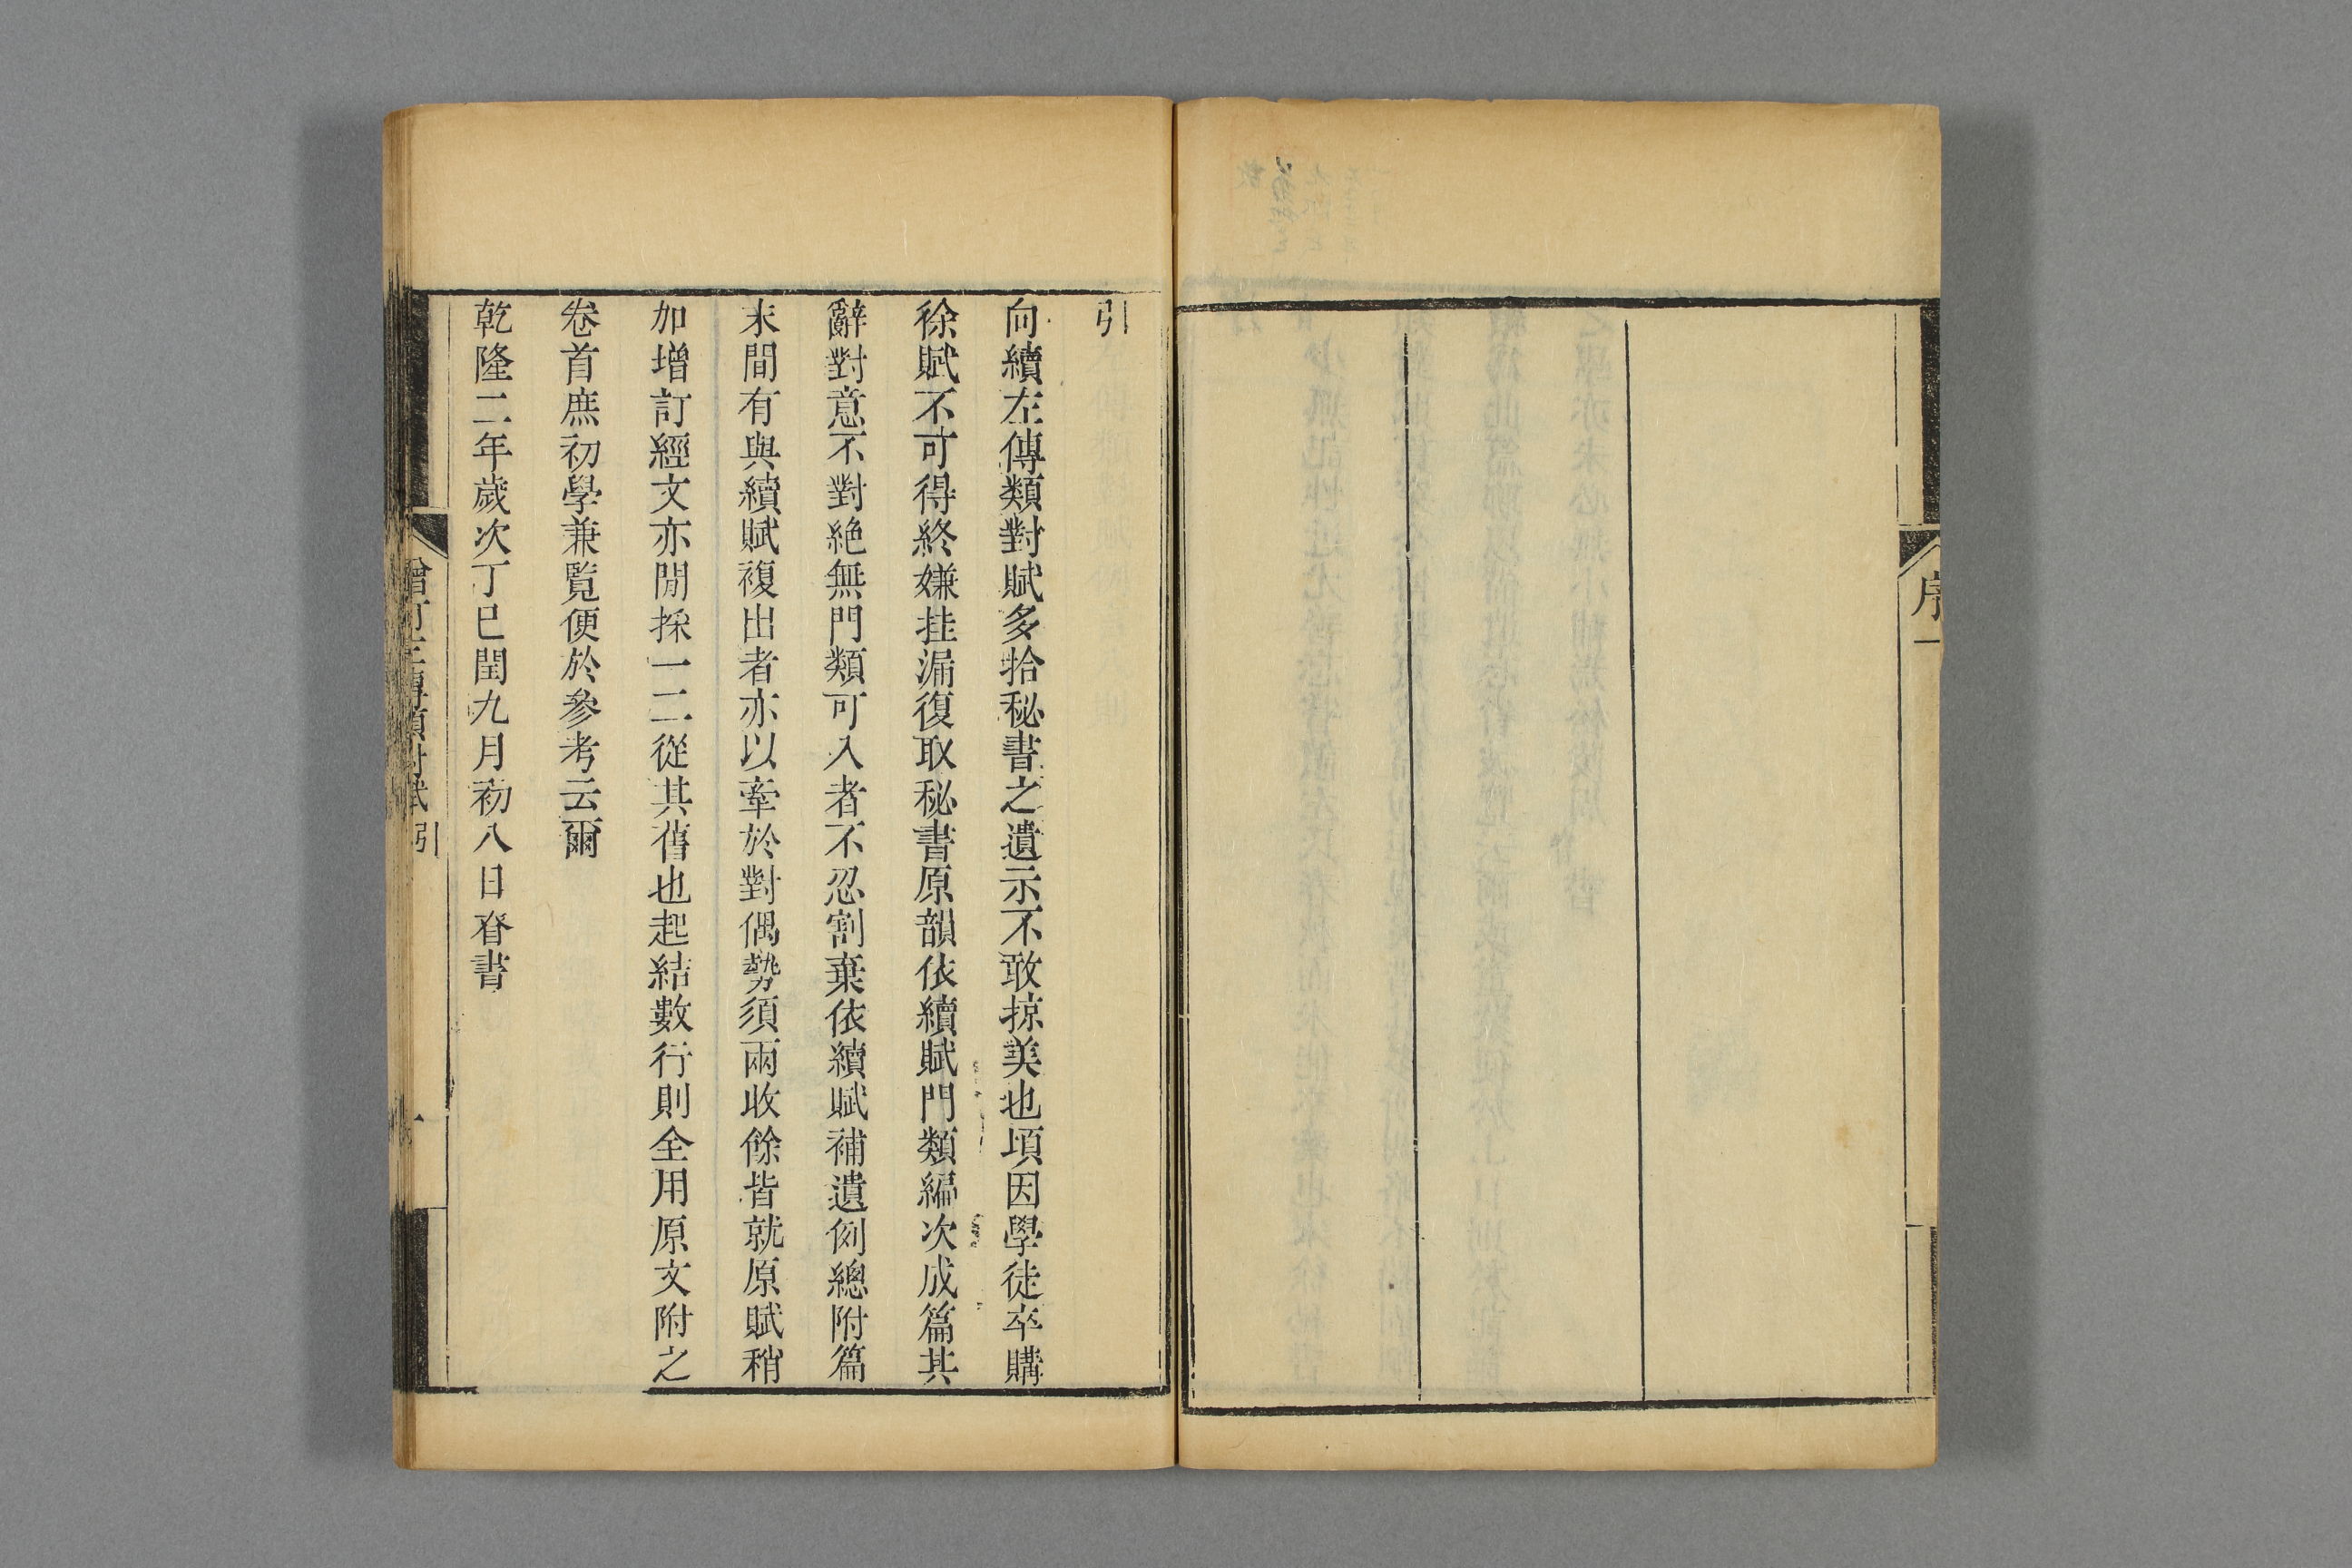 序
一
引
向續左傳類對賦多拾秘書之遺示不敢掠美也頃因學徒卒購
徐賦不可得終嫌挂漏復取秘書原韻依續賦門類編次成篇其
辭對意不對絶無門類可入者不忍割棄依續賦補遺例總附篇
末間有與續賦複出者亦以牽於對偶勢須兩收餘皆就原賦稍
加增訂經文亦間採一二從其舊也起結數行則全用原文附之
卷首庶初學兼覧便於參考云爾
乾隆二年歲次丁巳閏九月初八日眘書
增訂左傳類對賦 引
一